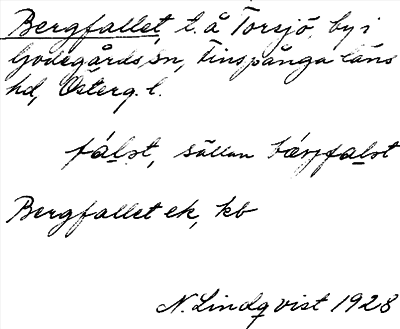 Bergfallet, t. å Torsjö, by i
Godegårds sn, Finspånga läns
hd, Österg. l.
fálst, sällan bærjfalst
Bergfallet ek, kb
N. Lindqvist 1928